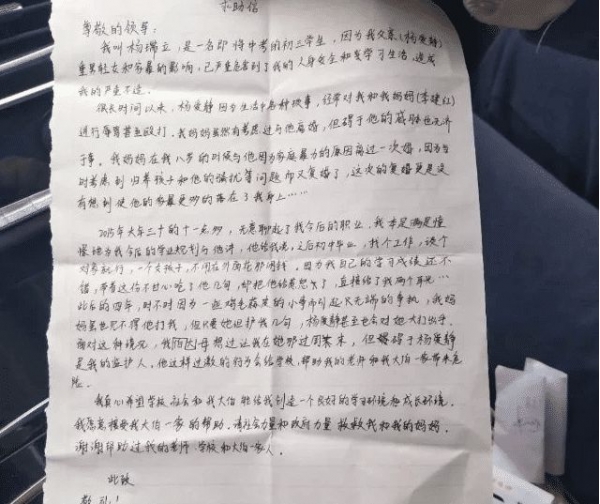 求助信
尊敬的领导：
我叫杨满立，是一名即将中考的初三学生，因为我父亲(杨爱静)
重男轻女和家暴的影响，已严重危害到了我的人身安全和我学习生活，造成
我的严重不适。
很长时间以来，杨爱静因为生活中各种琐事，经常对我和我妈妈(李建红)
进行辱骂甚至殴打。我妈妈虽然有考虑过与他离婚，但碍于他的威胁也无济
于事。我妈妈在我八岁的时候与他因为家庭暴力的原因离过一次婚，因为当
时考虑到归养孩子和他的骚扰等问题而又复婚了，这次的复婚更是没
有想到使他的家暴更多的落在了我身上……
2015年大年三十的十一点多，无意聊起了我今后的职业，我本是满是憧
憬地为我今后的学业规划与他讲，他给我说，之后初中毕业，找个工作，谈个
对象就行，一个女孩子，不用在外面花那闲钱，因为我自己的学习成绩还不
错，带着这份不甘心吃了他几句，却把他给惹怒了，直接给了我两个耳光…
此后的四年，时不时因为一些鸡毛蒜皮的小事而引起火无端的事执，我妈
妈虽也见不得他打我，但只要她回护我几句，杨爱静甚至也会对她大打出手。
面对这种情况，我伯母想过让我在她那过周末，但碍于杨爱静
是我的监护人，他这样过激的行为会给学校，帮助我的老师和我大伯一家带来危
险。
我真心希望学校，社会和我大伯能给我创造一个良好的学习环境和成长环境。
我愿意接受我大伯一家的帮助。请社会力量和政府力量救救我和我的妈妈。
谢谢帮助过我的老师，学校和大伯一家人。
此致
敬礼！